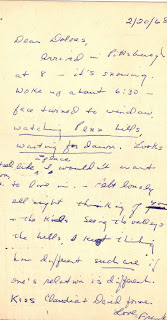 2/20/68
Dear Dolores,
Arrived in Pittsburgh
at 8 - it's snowing.
Woke up about 6:30 -
face turned to window,
watching Penn hills,
waiting for dawn. Looks
place
like I wouldn't want
to live in. - felt lonely
all night thinking of you
+ the kids. Seeing the valleys
the hills, I kept thinking
how different such are if
one's relation is different.
Kiss Claudia + David for me.
Love, Frank